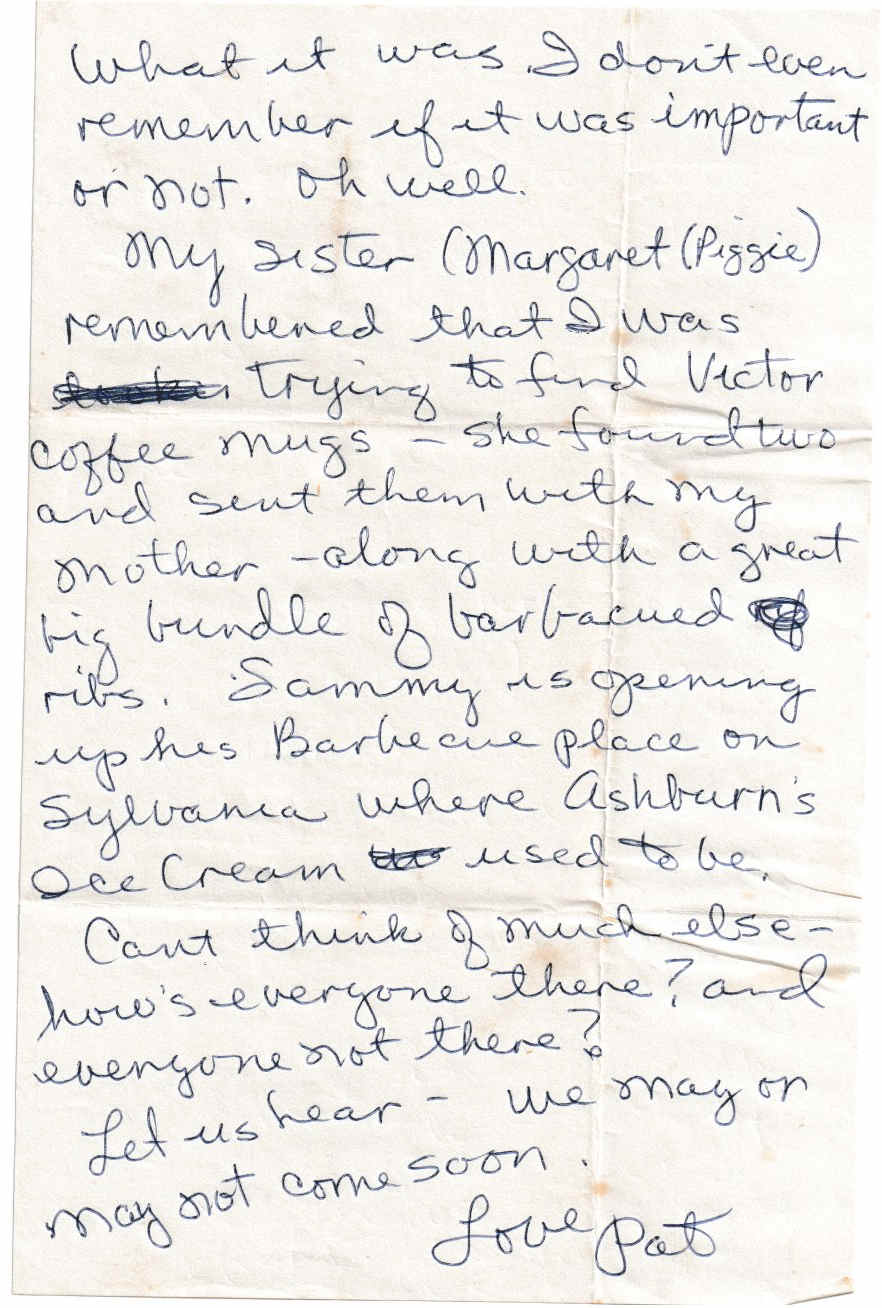 What it was I don't even
remember if it was important
or not. Oh well.
My sister (Margaret (Piggie)
remembered that I was
trying to find Victor
coffee mugs - she found two
and sent them with my
mother - along with a great
big bundle of barbacued
ribs. Sammy is opening
up his Barbecue place on
Sylvania where Ashburn's
Ice Cream used to be.
Cant think of much else -
how's everyone there? and
everyone not there?
Let us hear - we may or
may not come soon.
Love Pat